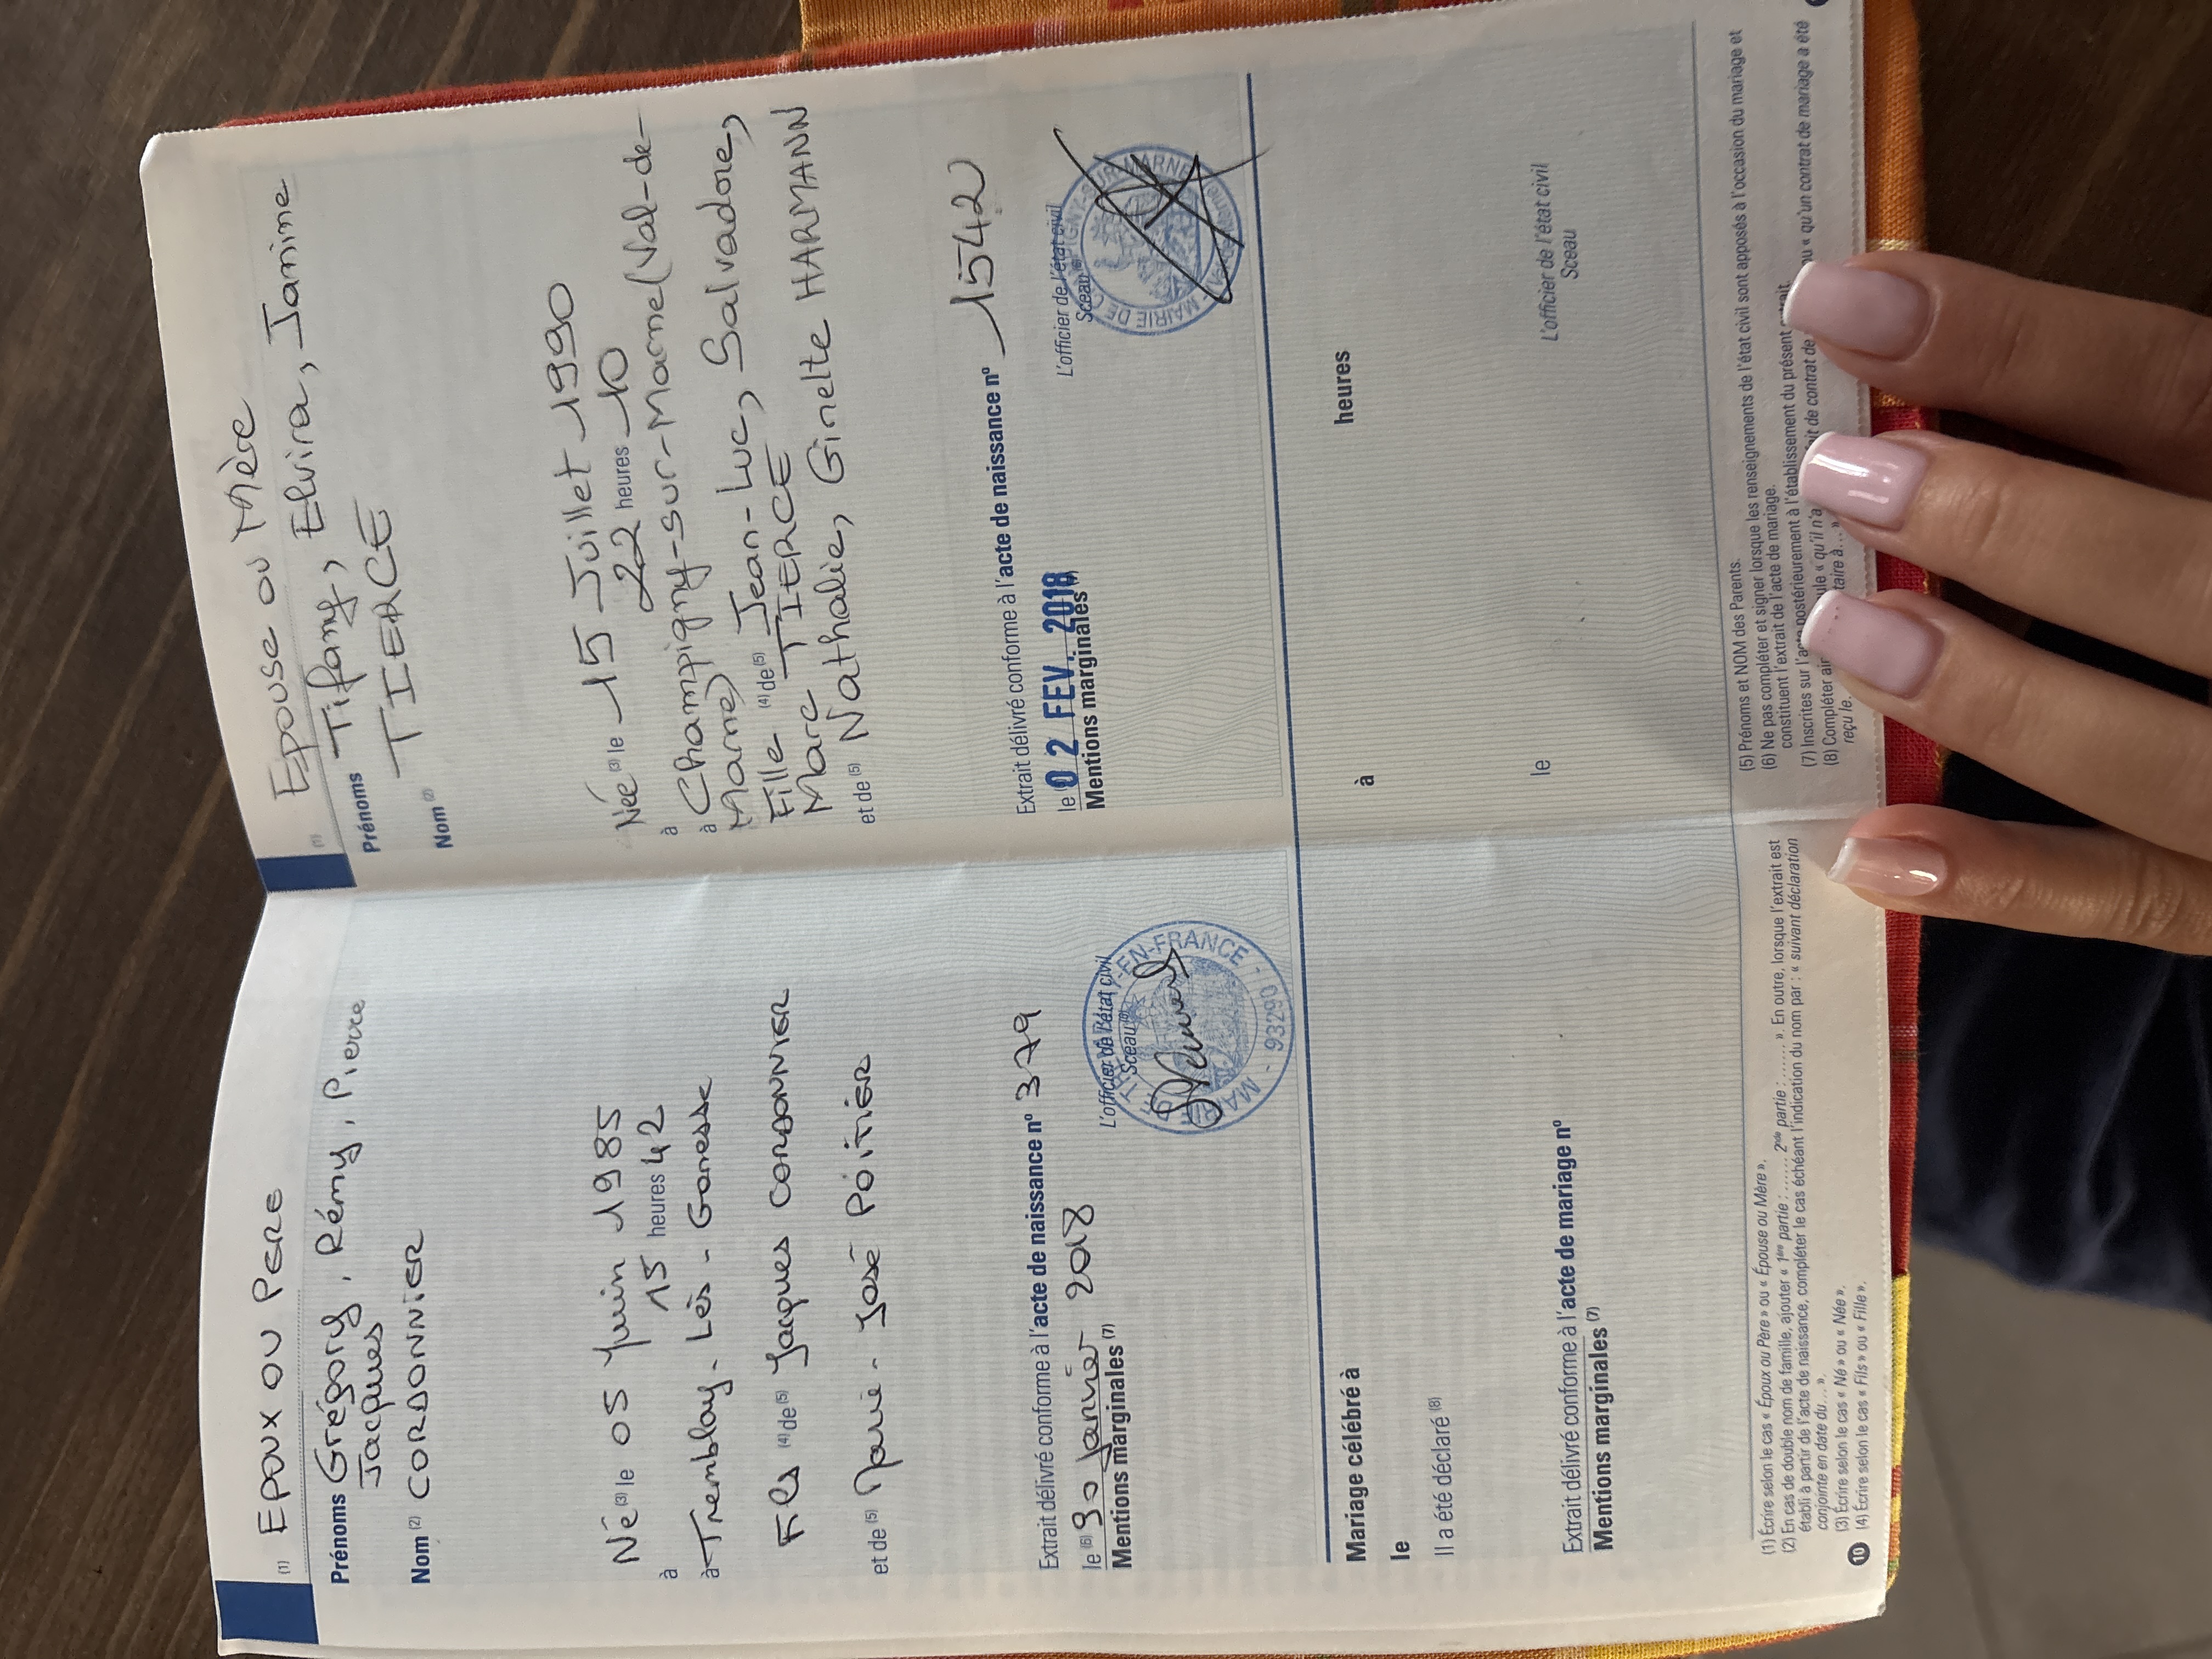 (1) EPOUX OU PERE
Prénoms Grégory, Rémy, Pierre
Jacques
Nom (2) CORDONNIER
Né (3) le 05 Juin 1985
à 15 heures 42
à Tremblay-Lès-Gonesse
Fils (4) de (5) Jacques CORDONNIER
et de (5) Marie-José POIRIER
Extrait délivré conforme à l'acte de naissance n° 379
le (6) 30 Janvier 2018
Mentions marginales (7)
L'officier de l'état civil
Sceau (6)
MAIRIE DE -EN-FRANCE - 93290 -
Mariage célébré à
le
Il a été déclaré (8)
Extrait délivré conforme à l'acte de mariage n°
Mentions marginales (7)
(1) Écrire selon le cas « Époux ou Père » ou « Épouse ou Mère ».
(2) En cas de double nom de famille, ajouter « 1ère partie : ...... 2nde partie : ...... ». En outre, lorsque l'extrait est
établi à partir de l'acte de naissance, compléter le cas échéant l'indication du nom par : « suivant déclaration
conjointe en date du ... ».
(3) Écrire selon le cas « Né » ou « Née ».
(4) Écrire selon le cas « Fils » ou « Fille ».
10
(1) Epouse ou Mère
Prénoms Tifany, Elvira, Janine
Nom (2) TIERCE
Née (3) le 15 Juillet 1990
à 22 heures 10
à Champigny-sur-Marne (Val-de-
Marne)
Fille (4) de (5) Jean-Luc, Salvadore,
Marc TIERCE
et de (5) Nathalie, Ginette HARMANN
Extrait délivré conforme à l'acte de naissance n° 1542
le 02 FEV. 2018
Mentions marginales (7)
L'officier de l'état civil
Sceau (6)
MAIRIE DE SUR-MARNE
à heures
le
L'officier de l'état civil
Sceau
(5) Prénoms et NOM des Parents.
(6) Ne pas compléter et signer lorsque les renseignements de l'état civil sont apposés à l'occasion du mariage et
constituent l'extrait de l'acte de mariage.
(7) Inscrites sur l'acte postérieurement à l'établissement du présent extrait.
(8) Compléter « qu'il n'a de contrat de ou « qu'un contrat de mariage a été
reçu le